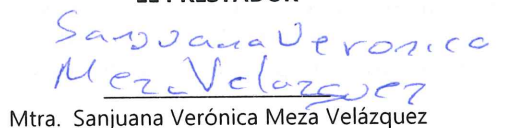 EL PRESTADOR
Sanjuana Veronica
Meza Velazquez
Mtra. Sanjuana Verónica Meza Velázquez